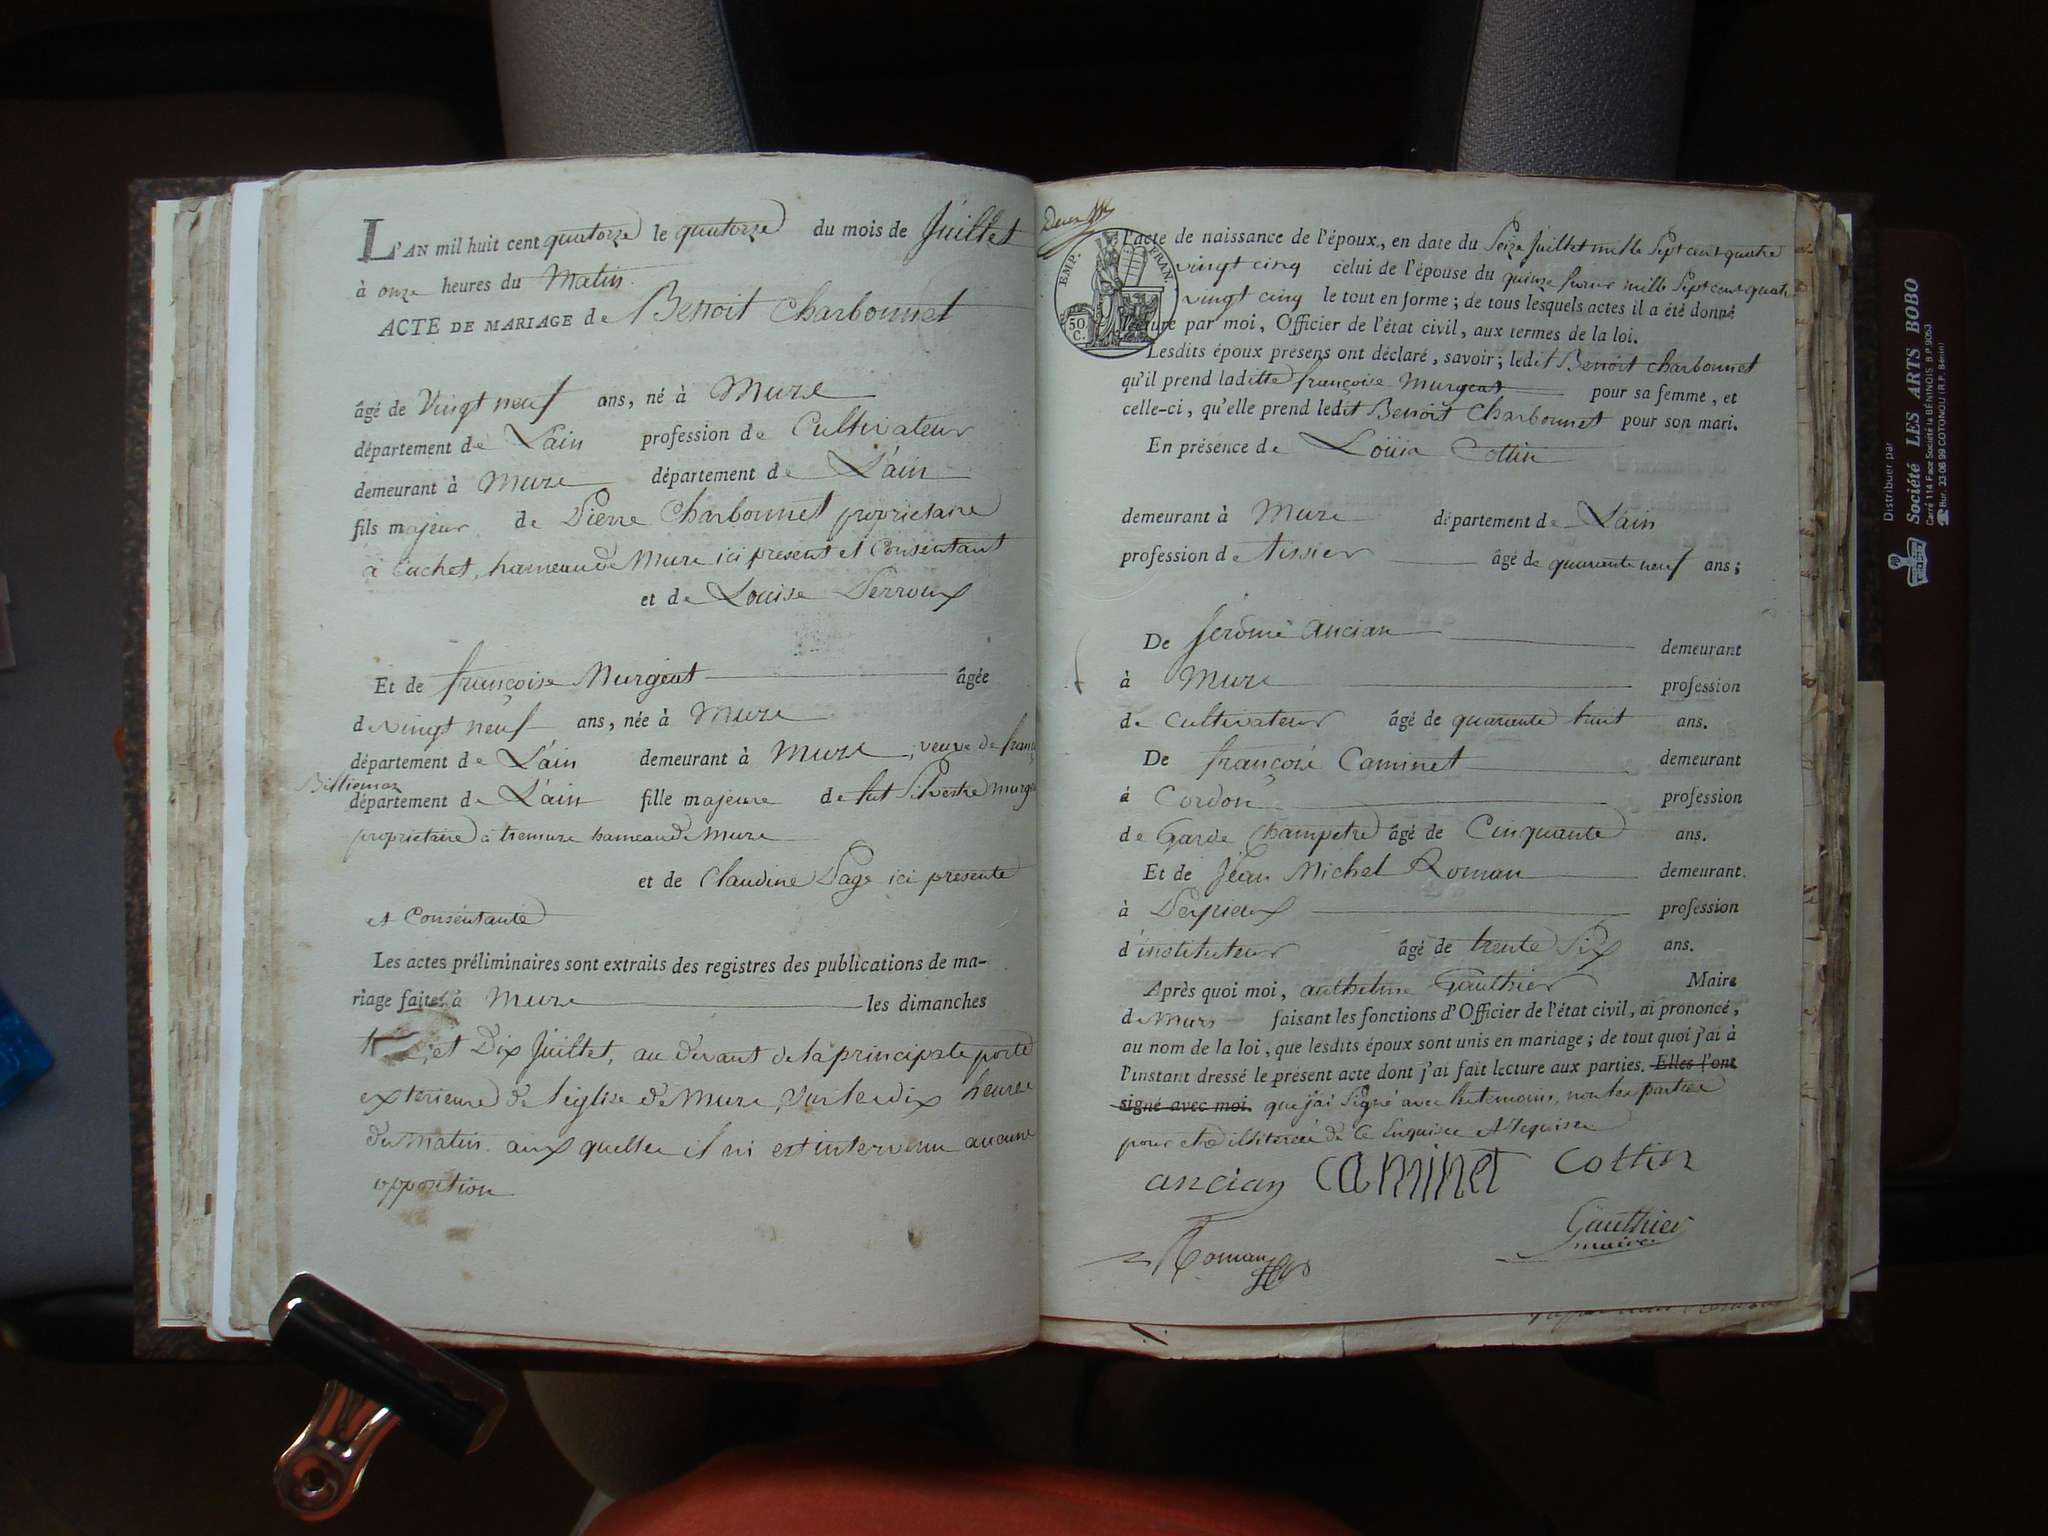 L'AN mil huit cent quatorze le quatorze du mois de Juillet
à onze heures du Matin
ACTE DE MARIAGE de Benoit Charbonnet
âgé de Vingt neuf ans, né à Mure
département de L'ain profession de Cultivateur
demeurant à Mure département de L'ain
fils majeur de Pierre Charbonnet proprietaire
à Cachet, hameau de Mure ici present et Consentant
et de Louise Perroux
Et de françoise Murgeat âgée
de vingt neuf ans, née à Mure
département de L'ain demeurant à Mure, veuve de
Billiemaz
département de L'ain fille majeure de fut Silvestre
proprietaire à tremure hameau de Mure
et de Claudine Page ici presente
et Consentante
Les actes préliminaires sont extraits des registres des publications de ma-
riage faites à Mure les dimanches
et Dix Juillet, au devant de la principale porte
exterieure de l'église de Mure, sur les dix heures
du matin aux quelles il ni est intervenu aucune
opposition
EMP. FRAN.
50. C.
l'acte de naissance de l'époux, en date du Seize Juillet mille Sept cent quatre
vingt cinq celui de l'épouse du quinze mille Sept cent quatre
vingt cinq le tout en forme; de tous lesquels actes il a été donné
lecture par moi, Officier de l'état civil, aux termes de la loi.
Lesdits époux présens ont déclaré, savoir; ledit Benoit Charbonnet
qu'il prend laditte françoise Murgeat pour sa femme, et
celle-ci, qu'elle prend ledit Benoit Charbonnet pour son mari.
En présence de Louis Cottin
demeurant à Mure département de L'ain
profession de tissier âgé de quarante neuf ans;
De Jérôme Ancian demeurant
à Mure profession
de Cultivateur âgé de quarante huit ans.
De françois Caminet demeurant
à Cordon profession
de Garde Champetre âgé de Cinquante ans.
Et de Jean Michel Roman demeurant
à Peyrieux profession
d'instituteur âgé de trente Six ans.
Après quoi moi, anthelme Gauthier Maire
de Murs faisant les fonctions d'Officier de l'état civil, ai prononcé,
au nom de la loi, que lesdits époux sont unis en mariage; de tout quoi j'ai à
l'instant dressé le présent acte dont j'ai fait lecture aux parties. Elles l'ont
signé avec moi. que j'ai Signé avec les temoins, non les parties
pour etre illiterées de ce Enquises et Requises
ancian Caminet Cottin
Roman
Gauthier
maire
Distribuer par
Société LES ARTS BOBO
Carré 114 Face Société la BÉNINOIS B.P. 9053
Bur. 33 06 99 COTONOU (R.P. Bénin)